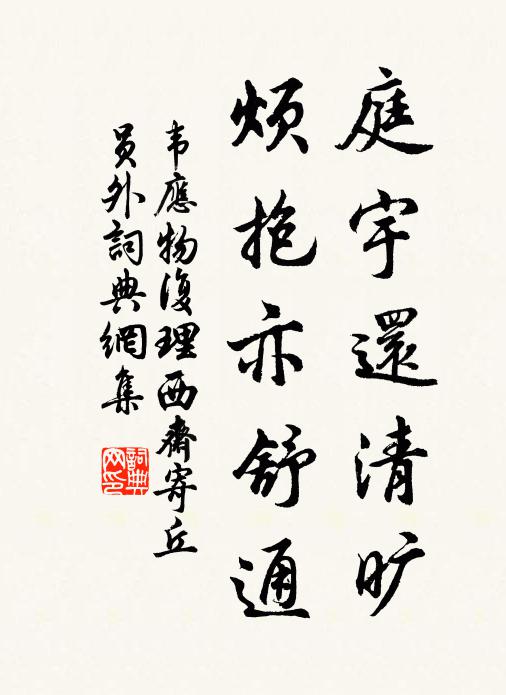 庭宇還清旷
烦抱亦舒通
韦應物復理西齋寄丘
员外詞典網集
詞典
网印